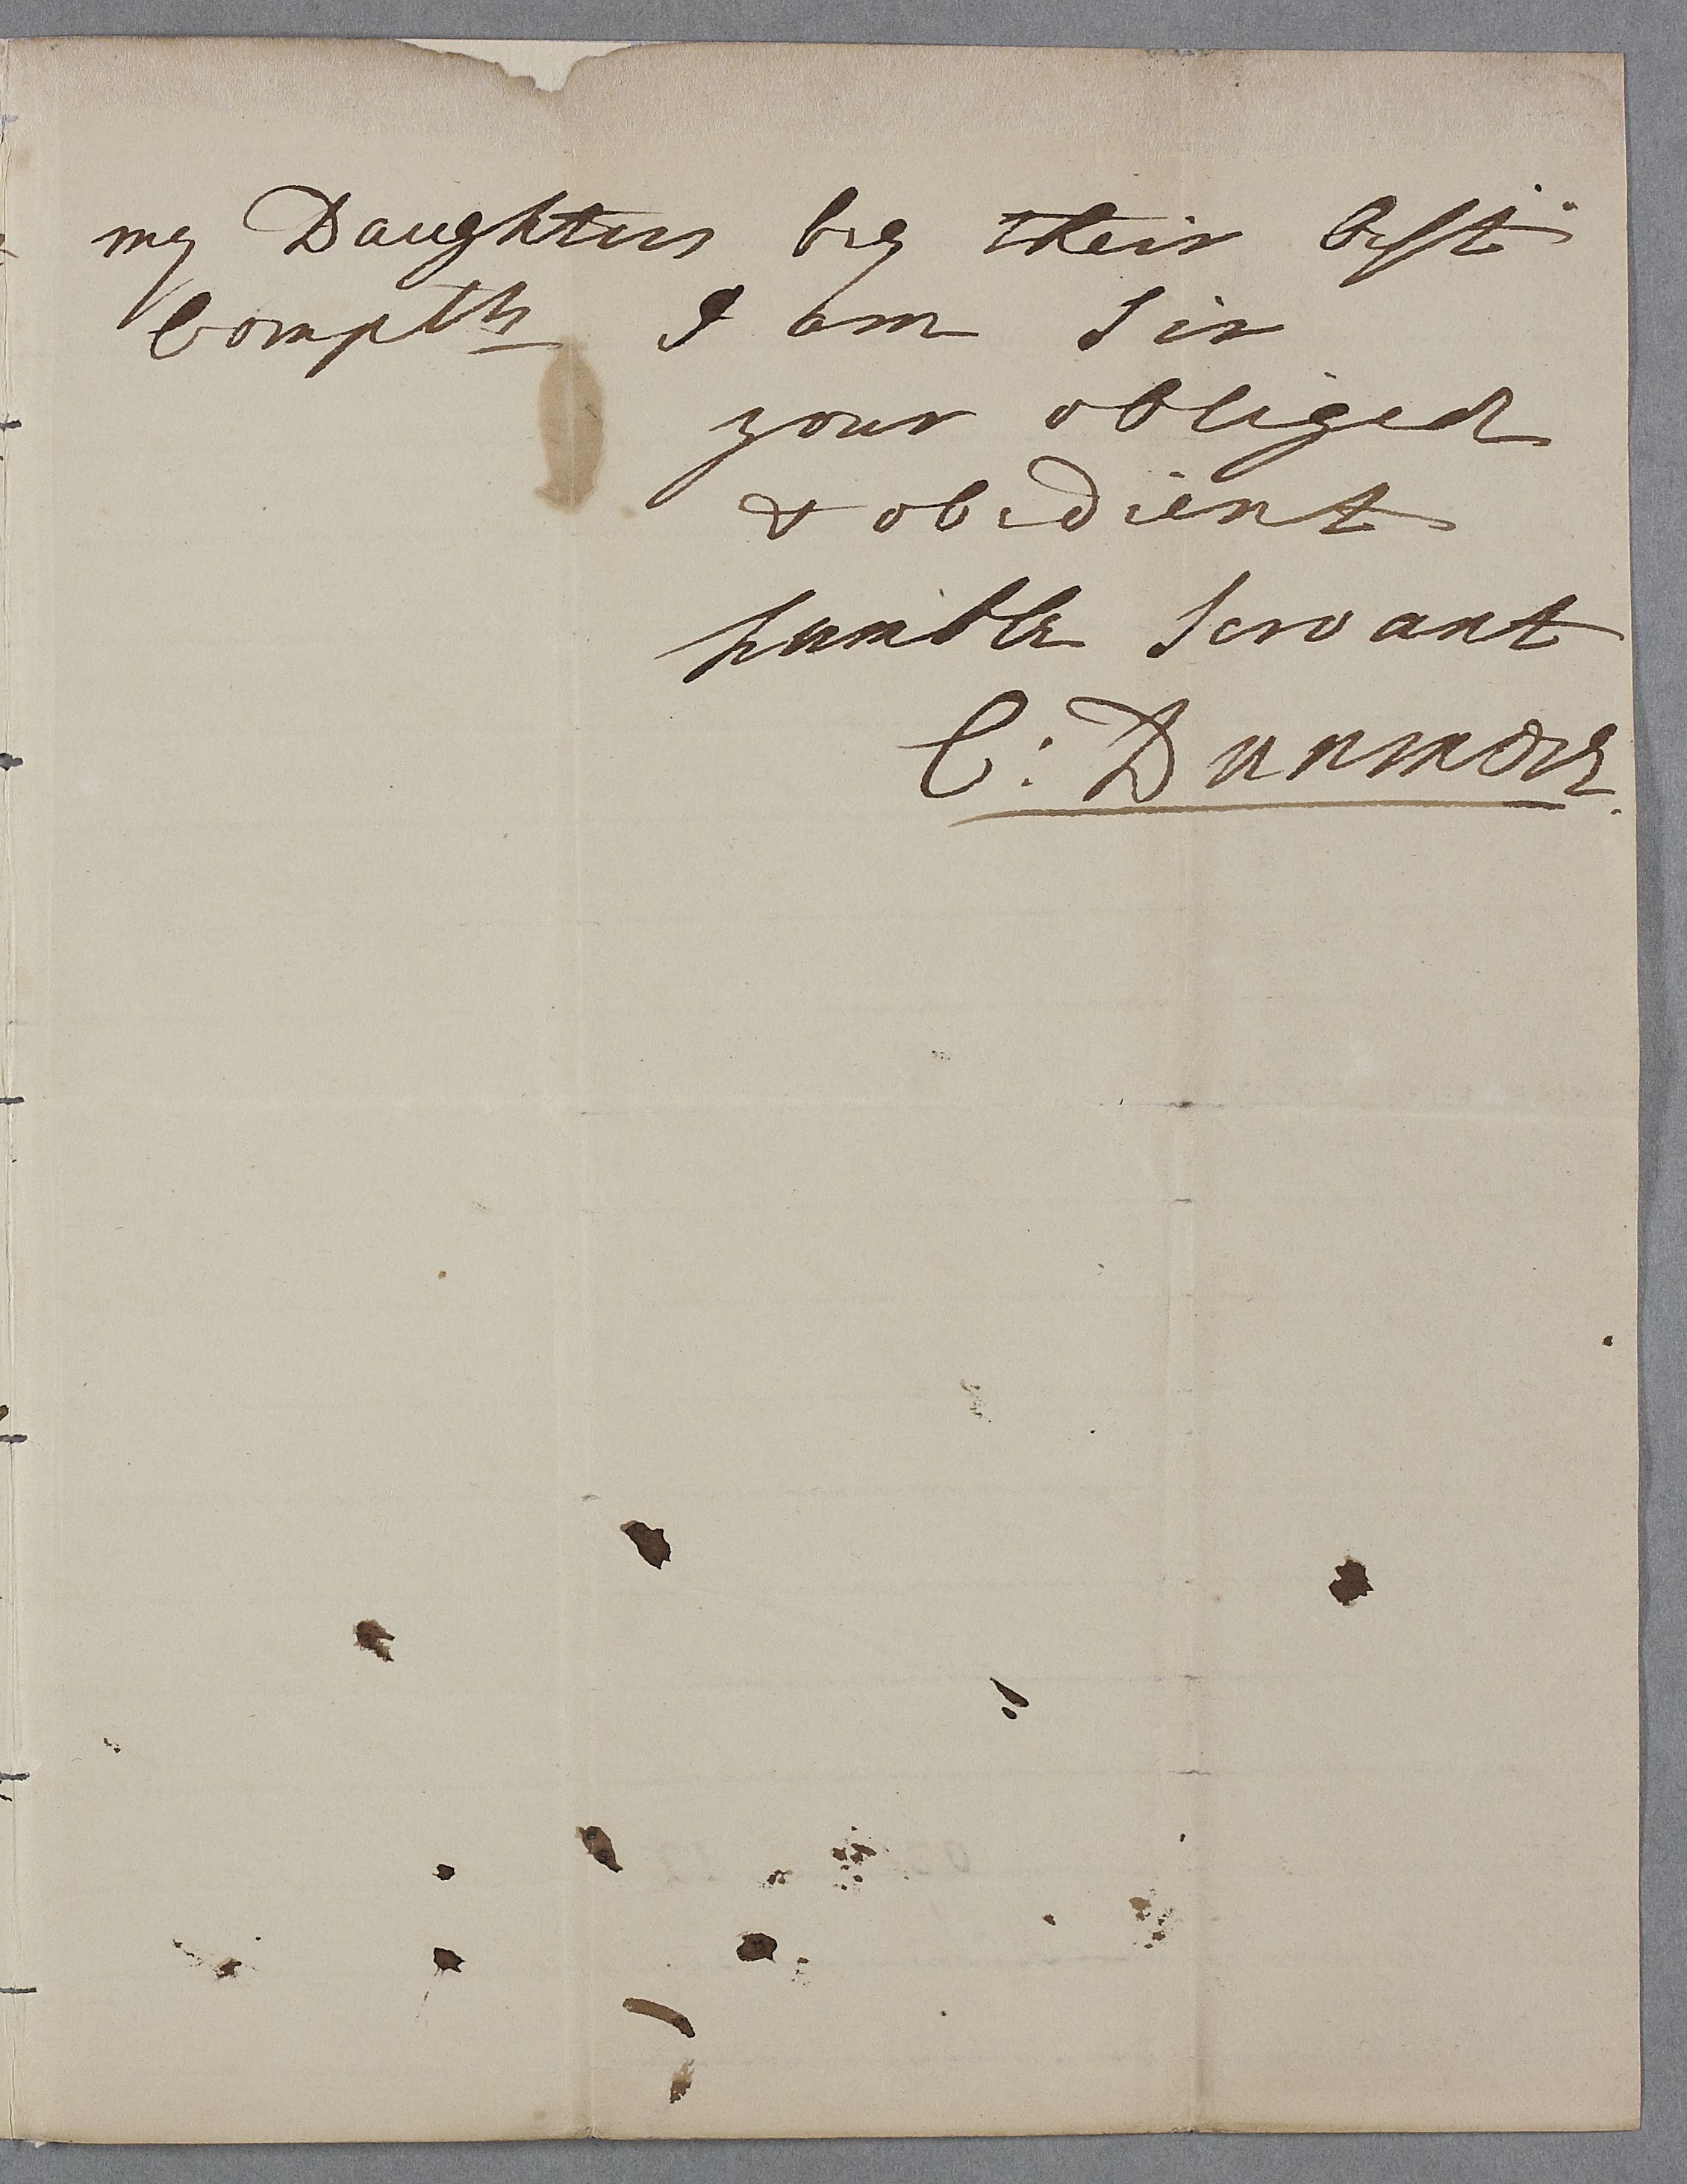 my Daughters beg their best
Compts I am Sir
your obliged
& obedient
humble Servant
C: Dunmore.